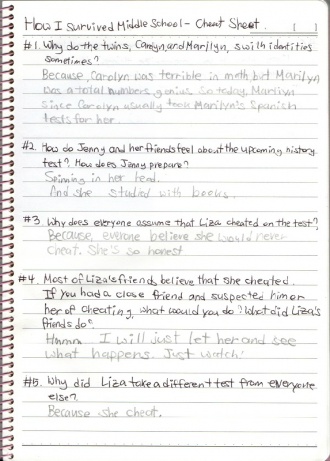 How I survived Middle School - Cheat Sheet.
#1. Why do the twins, Carolyn and Marilyn, switch identities
sometimes?
Because, Carolyn was terrible in math but Marilyn
was a total numbers genius so today, Marilyn
since Carolyn usually took Marilyn's Spanish
tests for her.
#2. How do Jenny and her friends feel about the upcoming history
test? How does Jenny prepare?
Spinning in her head.
And she studied with books.
#3. Why does everyone assume that Liza cheated on the test?
Because, everone believe she would never
cheat. She's so honest
#4. Most of Liza's friends believe that she cheated.
If you had a close friend and suspected him or
her of cheating, what would you do? What did Liza's
friends do?
Hmmm I will just let her and see
what happens. Just watch!
#5. Why did Liza take a different test from everyone
else?
Because she cheat.